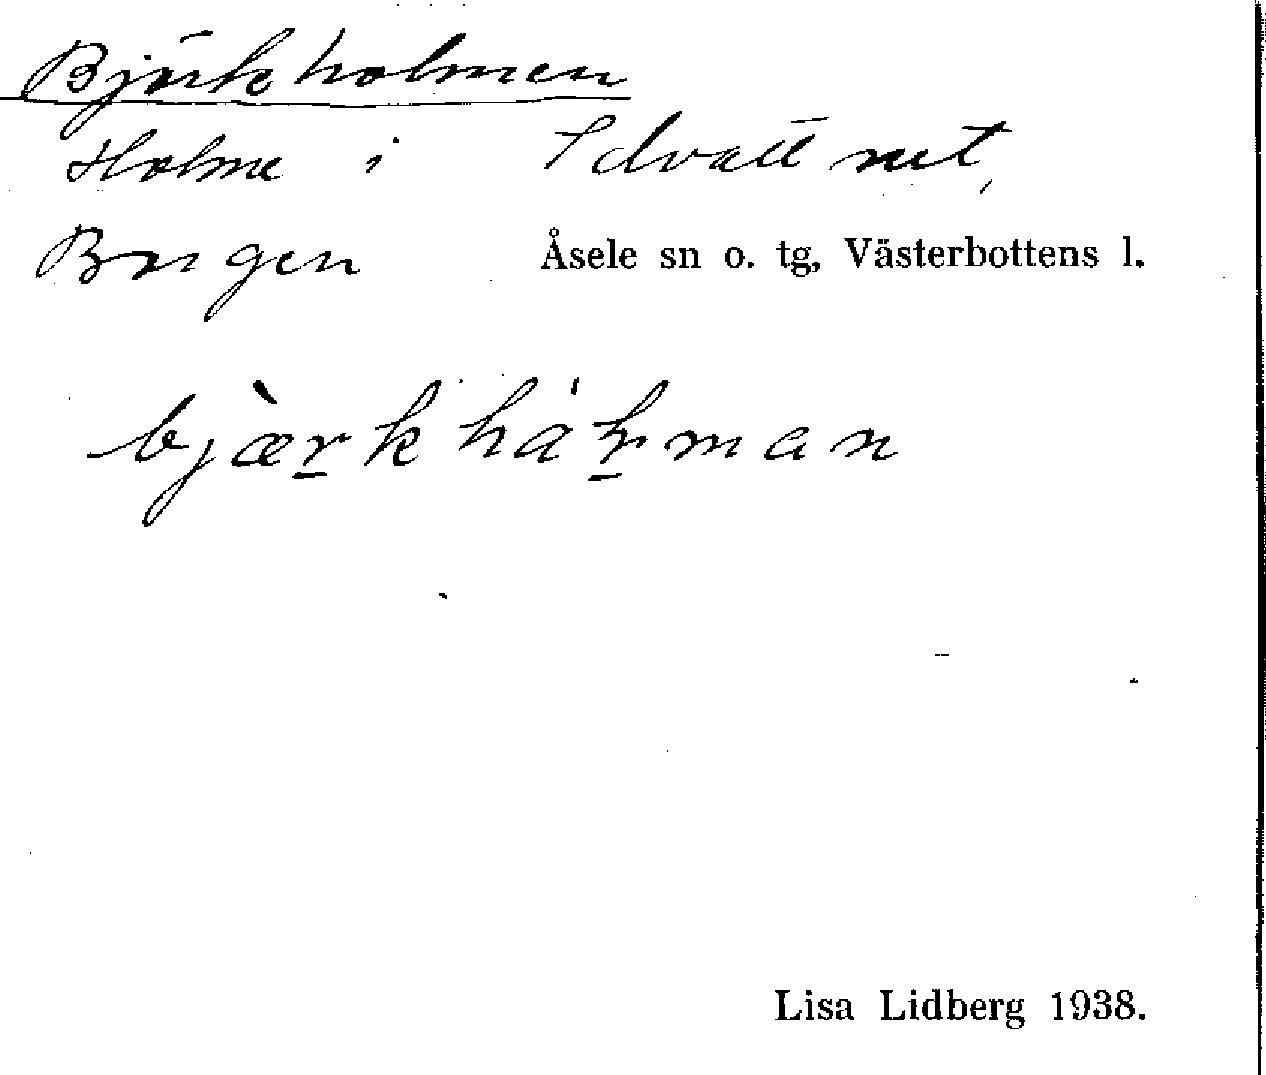 Björkholmen
Holme i Idvattnet,
Borgen Åsele sn o. tg, Västerbottens l.
bjæ̀r̠k hå̍l̠man
Lisa Lidberg 1938.